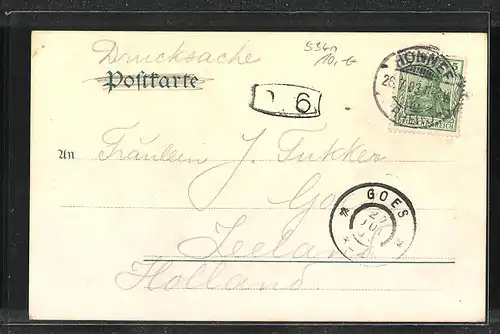 Drucksache
5341
10,-
Postkarte
HONNEF
26.7.03
5
REICH
6
An Fräulein J. Fukker
Goes
GOES
27 JUL
Zeeland
Holland.